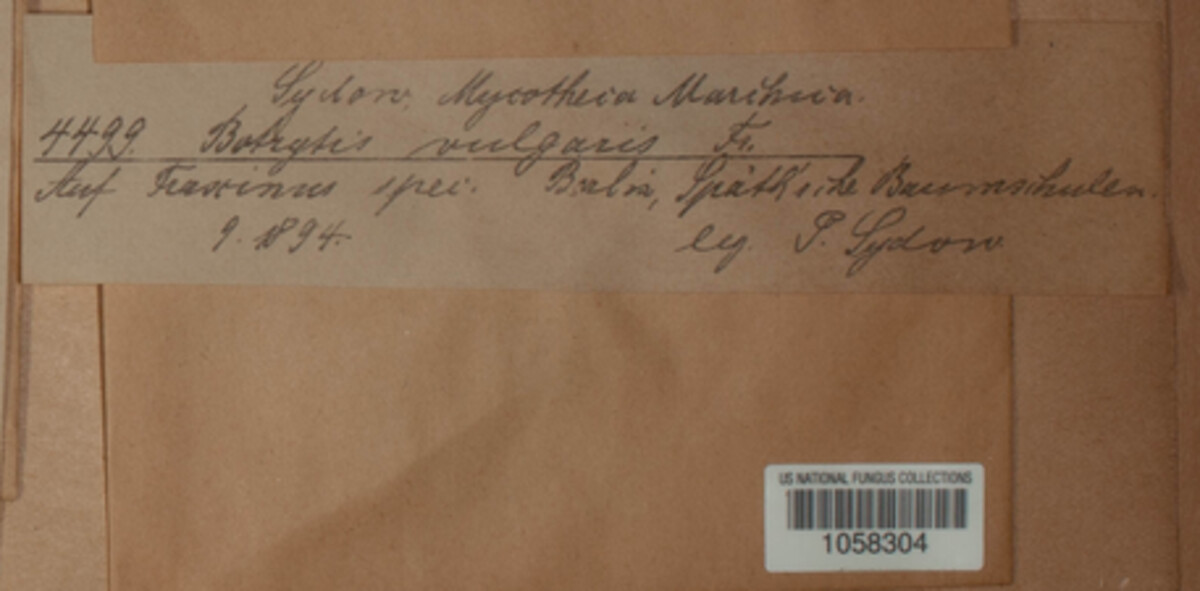 Sydow, Mycotheca Marchica.
4499. Botrytis vulgaris Fr.
Auf Fraxinus spec. Berlin, Späth'sche Baumschulen.
9. 1894. leg. P. Sydow
US NATIONAL FUNGUS COLLECTIONS
1058304